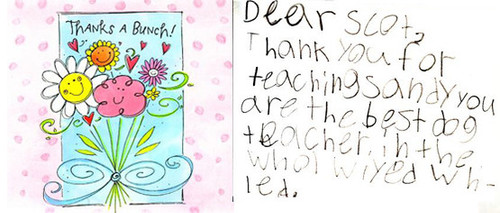 THANKS A BUNCH!
Dear Scot,
Thank you for
teaching sandy you
are the best dog
teacher, in the
whol wiyed wh-
led.